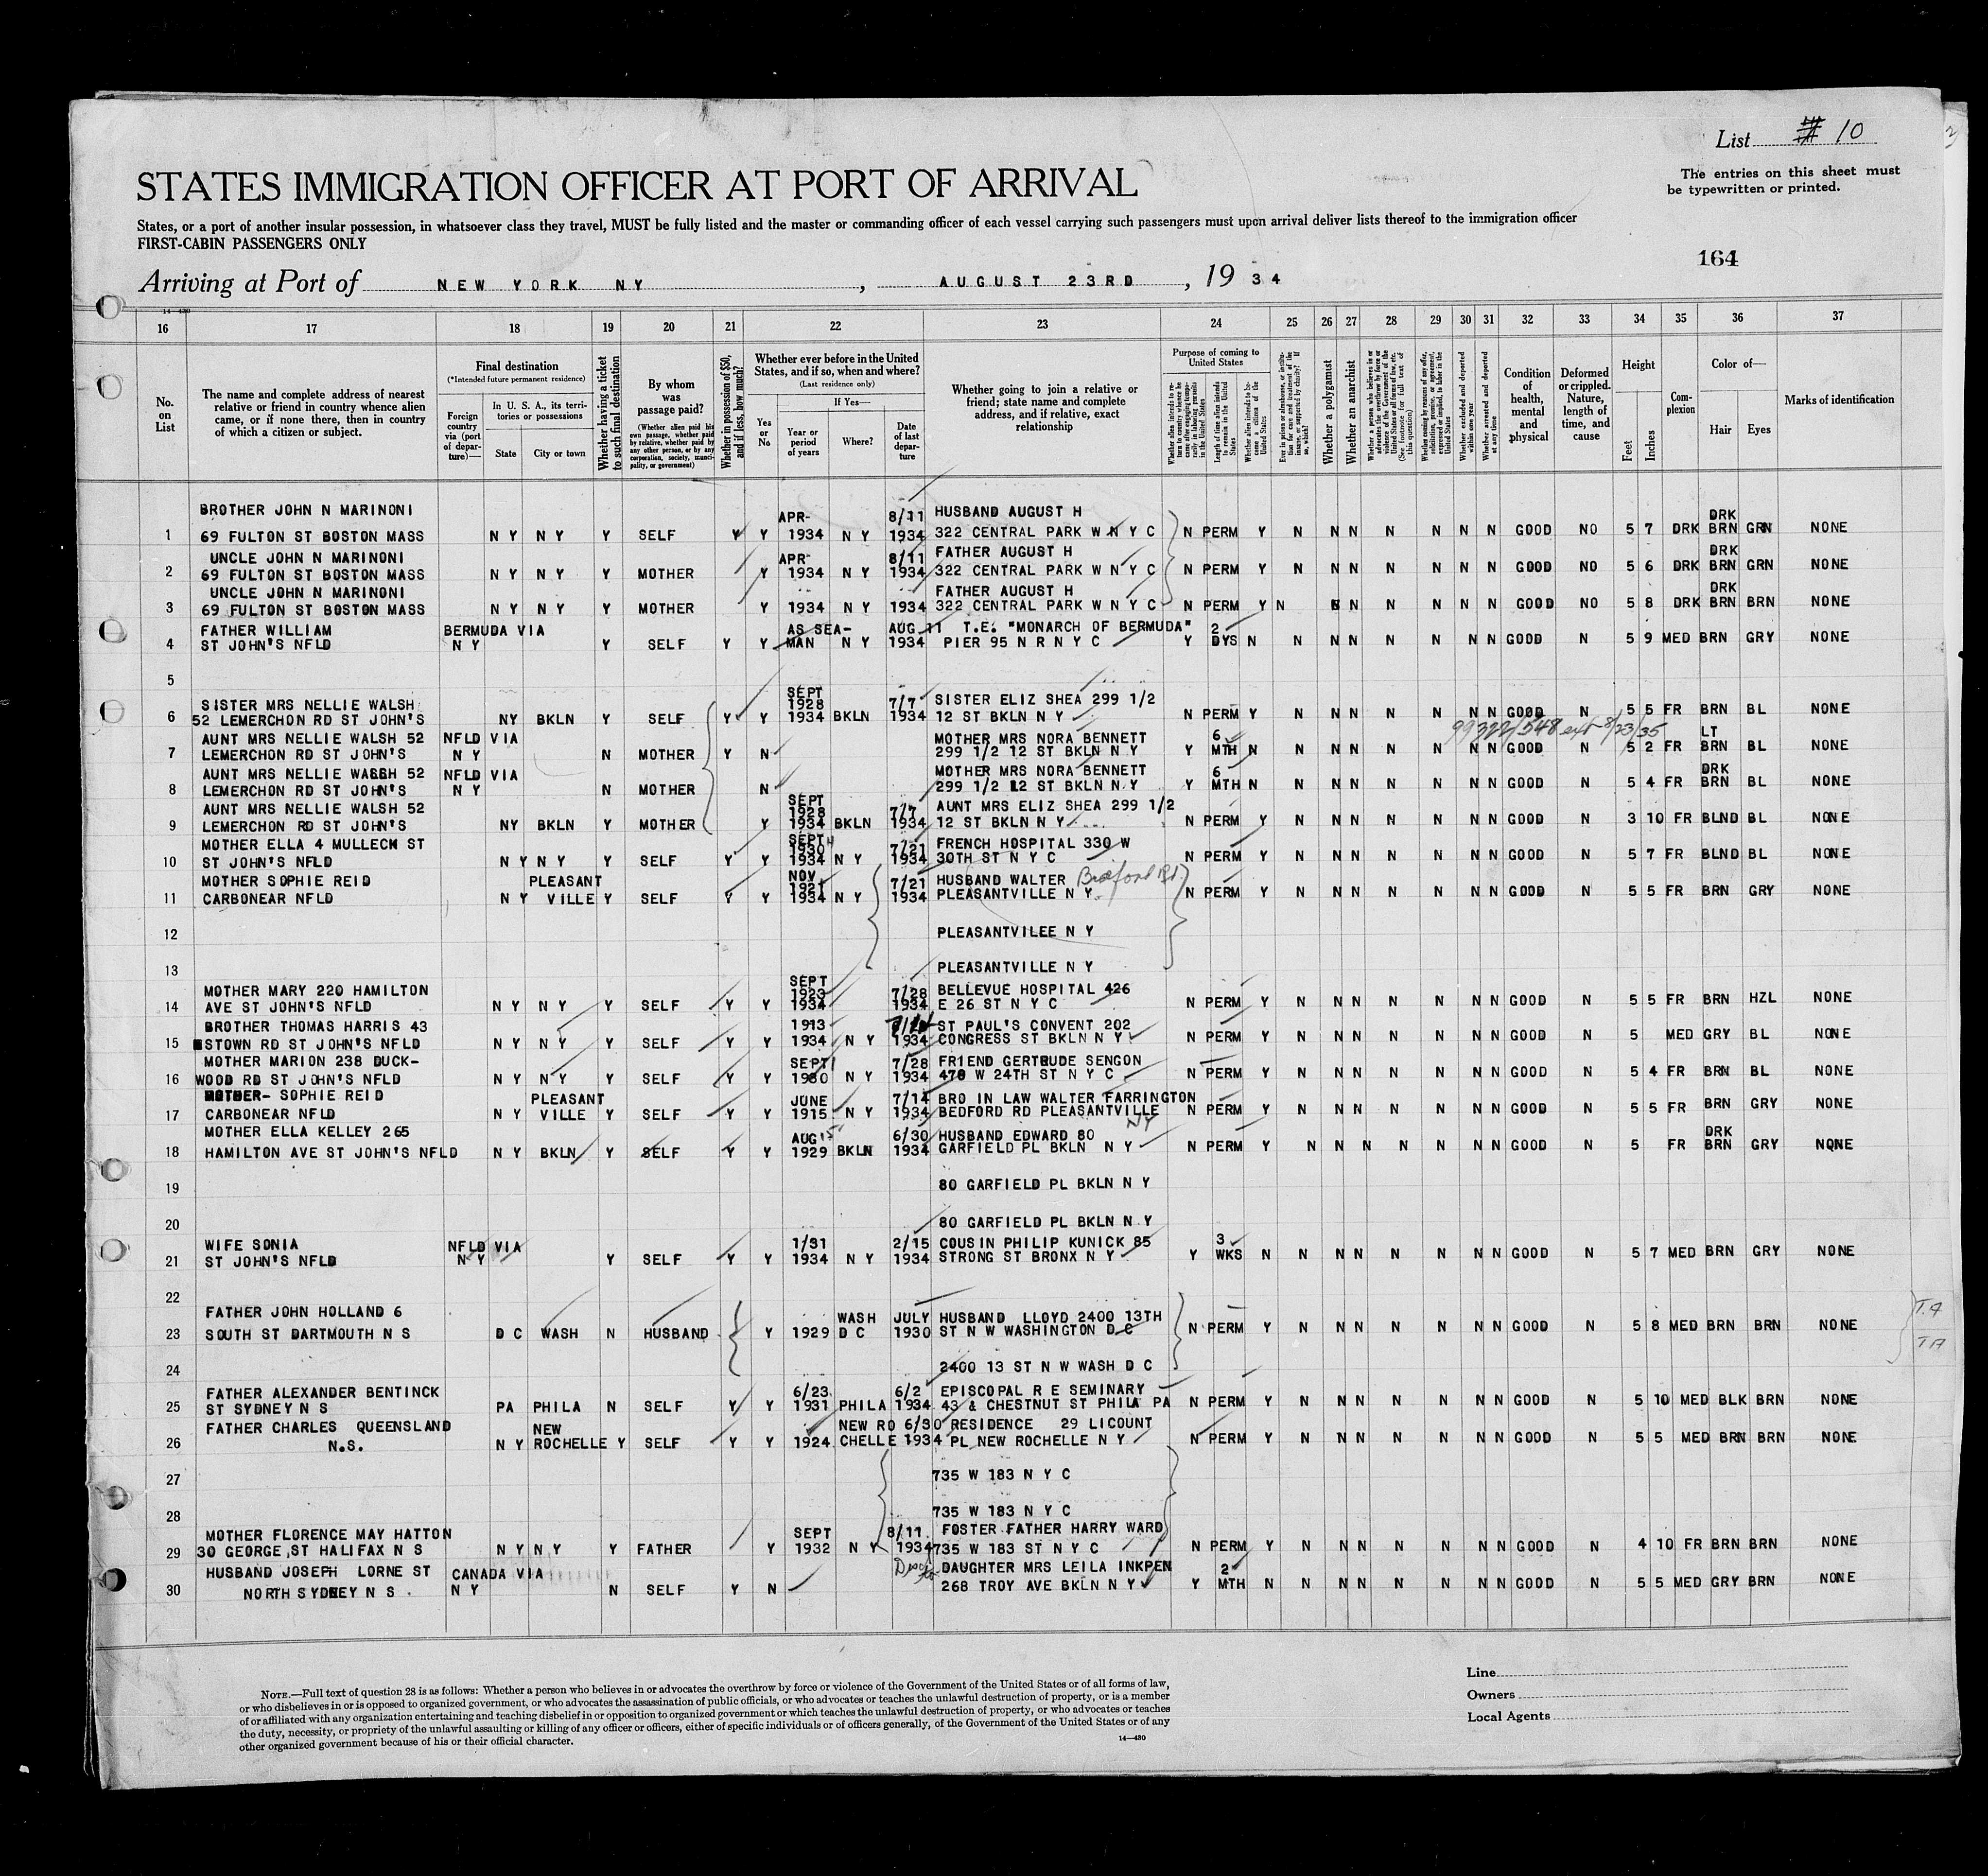 List # 10
The entries on this sheet must
be typewritten or printed.
STATES IMMIGRATION OFFICER AT PORT OF ARRIVAL
States, or a port of another insular possession, in whatsoever class they travel, MUST be fully listed and the master or commanding officer of each vessel carrying such passengers must upon arrival deliver lists thereof to the immigration officer
FIRST-CABIN PASSENGERS ONLY
164
Arriving at Port of NEW YORK NY , AUGUST 23RD , 19 34
14-430
16 17 18 19 20 21 22 23 24 25 26 27 28 29 30 31 32 33 34 35 36 37
No. on List
The name and complete address of nearest relative or friend in country whence alien came, or if none there, then in country of which a citizen or subject.
Final destination
(*Intended future permanent residence)
Foreign country via (port of departure)—
In U. S. A., its territories or possessions
State City or town
Whether having a ticket to such final destination
By whom was passage paid?
(Whether alien paid his own passage, whether paid by relative, whether paid by any other person, or by any corporation, society, municipality, or government)
Whether in possession of $50, and if less, how much?
Whether ever before in the United States, and if so, when and where?
(Last residence only)
Yes or No
If Yes—
Year or period of years Where? Date of last departure
Whether going to join a relative or friend; state name and complete address, and if relative, exact relationship
Purpose of coming to United States
Whether alien intends to return to country whence he came after engaging temporarily in laboring pursuits in the United States
Length of time alien intends to remain in the United States
Whether alien intends to become a citizen of the United States
Ever in prison or almshouse, or institution for care and treatment of the insane, or supported by charity? If so, which?
Whether a polygamist
Whether an anarchist
Whether a person who believes in or advocates the overthrow by force or violence of the Government of the United States or all forms of law, etc. (See footnote for full text of this question)
Whether coming by reasons of any offer, solicitation, promise, or agreement, expressed or implied, to labor in the United States
Whether excluded and deported within one year
Whether arrested and deported at any time
Condition of health, mental and physical
Deformed or crippled. Nature, length of time, and cause
Height
Feet Inches
Complexion
Color of—
Hair Eyes
Marks of identification
BROTHER JOHN N MARINONI APR- 8/11 HUSBAND AUGUST H DRK
1 69 FULTON ST BOSTON MASS N Y N Y Y SELF Y Y 1934 N Y 1934 322 CENTRAL PARK W N Y C N PERM Y N N N N N N N GOOD NO 5 7 DRK BRN GRN NONE
UNCLE JOHN N MARINONI APR 8/11 FATHER AUGUST H DRK
2 69 FULTON ST BOSTON MASS N Y N Y Y MOTHER Y 1934 N Y 1934 322 CENTRAL PARK W N Y C N PERM Y N N N N N N N GOOD NO 5 6 DRK BRN GRN NONE
UNCLE JOHN N MARINONI FATHER AUGUST H DRK
3 69 FULTON ST BOSTON MASS N Y N Y Y MOTHER Y 1934 N Y 1934 322 CENTRAL PARK W N Y C N PERM Y N N N N N N N GOOD NO 5 8 DRK BRN BRN NONE
FATHER WILLIAM BERMUDA VIA AS SEA- AUG 11 T.E. "MONARCH OF BERMUDA" 2
4 ST JOHN'S NFLD N Y Y SELF Y Y MAN N Y 1934 PIER 95 N R N Y C Y DYS N N N N N N N N GOOD N 5 9 MED BRN GRY NONE
5
SISTER MRS NELLIE WALSH SEPT 1928 7/7 SISTER ELIZ SHEA 299 1/2
6 52 LEMERCHON RD ST JOHN'S NY BKLN Y SELF Y Y 1934 BKLN 1934 12 ST BKLN N Y N PERM Y N N N N N N N GOOD N 5 5 FR BRN BL NONE
99322/548 ext 8/23/35
AUNT MRS NELLIE WALSH 52 NFLD VIA MOTHER MRS NORA BENNETT 6 LT
7 LEMERCHON RD ST JOHN'S N Y N MOTHER Y N 299 1/2 12 ST BKLN N Y Y MTH N N N N N N N N GOOD N 5 2 FR BRN BL NONE
AUNT MRS NELLIE WALSH 52 NFLD VIA MOTHER MRS NORA BENNETT 6 DRK
8 LEMERCHON RD ST JOHN'S N Y N MOTHER N 299 1/2 12 ST BKLN N Y Y MTH N N N N N N N N GOOD N 5 4 FR BRN BL NONE
AUNT MRS NELLIE WALSH 52 SEPT 1928 7/7 AUNT MRS ELIZ SHEA 299 1/2
9 LEMERCHON RD ST JOHN'S NY BKLN Y MOTHER Y 1934 BKLN 1934 12 ST BKLN N Y N PERM Y N N N N N N N GOOD N 3 10 FR BLND BL NONE
MOTHER ELLA 4 MULLECK ST SEPT 1930 7/21 FRENCH HOSPITAL 330 W
10 ST JOHN'S NFLD N Y N Y Y SELF Y Y 1934 N Y 1934 30TH ST N Y C N PERM Y N N N N N N N GOOD N 5 7 FR BLND BL NONE
MOTHER SOPHIE REID PLEASANT NOV 1921 7/21 HUSBAND WALTER Bedford Rd.
11 CARBONEAR NFLD N Y VILLE Y SELF Y Y 1934 N Y 1934 PLEASANTVILLE N Y N PERM Y N N N N N N N GOOD N 5 5 FR BRN GRY NONE
12 PLEASANTVILEE N Y
13 PLEASANTVILLE N Y
MOTHER MARY 220 HAMILTON SEPT 1923 7/28 BELLEVUE HOSPITAL 426
14 AVE ST JOHN'S NFLD N Y N Y Y SELF Y Y 1934 1934 E 26 ST N Y C N PERM Y N N N N N N N GOOD N 5 5 FR BRN HZL NONE
BROTHER THOMAS HARRIS 43 1913 ST PAUL'S CONVENT 202
15 STOWN RD ST JOHN'S NFLD N Y N Y Y SELF Y Y 1934 N Y 1934 CONGRESS ST BKLN N Y N PERM Y N N N N N N N GOOD N 5 MED GRY BL NONE
MOTHER MARION 238 DUCK- SEPT 7/28 FRIEND GERTRUDE SENGON
16 WOOD RD ST JOHN'S NFLD N Y N Y Y SELF Y Y 1930 N Y 1934 470 W 24TH ST N Y C N PERM Y N N N N N N N GOOD N 5 4 FR BRN BL NONE
MOTHER- SOPHIE REID PLEASANT JUNE 7/14 BRO IN LAW WALTER FARRINGTON
17 CARBONEAR NFLD N Y VILLE Y SELF Y Y 1915 N Y 1934 BEDFORD RD PLEASANTVILLE NY N PERM Y N N N N N N N GOOD N 5 5 FR BRN GRY NONE
MOTHER ELLA KELLEY 265 AUG 15 6/30 HUSBAND EDWARD 80 DRK
18 HAMILTON AVE ST JOHN'S NFLD N Y BKLN Y SELF Y Y 1929 BKLN 1934 GARFIELD PL BKLN N Y N PERM Y N N N N N N N GOOD N 5 FR BRN GRY NONE
19 80 GARFIELD PL BKLN N Y
20 80 GARFIELD PL BKLN N Y
WIFE SONIA NFLD VIA 1/31 2/15 COUSIN PHILIP KUNICK 85 3
21 ST JOHN'S NFLD N Y Y SELF Y Y 1934 N Y 1934 STRONG ST BRONX N Y Y WKS N N N N N N N N GOOD N 5 7 MED BRN GRY NONE
22
FATHER JOHN HOLLAND 6 WASH JULY HUSBAND LLOYD 2400 13TH T.A
23 SOUTH ST DARTMOUTH N S D C WASH N HUSBAND Y 1929 D C 1930 ST N W WASHINGTON D C N PERM Y N N N N N N N GOOD N 5 8 MED BRN BRN NONE T A
24 2400 13 ST N W WASH D C
FATHER ALEXANDER BENTINCK 6/23 6/2 EPISCOPAL R E SEMINARY
25 ST SYDNEY N S PA PHILA N SELF Y Y 1931 PHILA 1934 43 & CHESTNUT ST PHILA PA N PERM Y N N N N N N N GOOD N 5 10 MED BLK BRN NONE
FATHER CHARLES QUEENSLAND NEW NEW RO 6/30 RESIDENCE 29 LICOUNT
26 N.S. N Y ROCHELLE Y SELF Y Y 1924 CHELLE 1934 PL NEW ROCHELLE N Y N PERM Y N N N N N N N GOOD N 5 5 MED BRN BRN NONE
27 735 W 183 N Y C
28 735 W 183 N Y C
MOTHER FLORENCE MAY HATTON SEPT 8/11 FOSTER FATHER HARRY WARD
29 30 GEORGE ST HALIFAX N S N Y N Y Y FATHER Y 1932 N Y 1934 735 W 183 ST N Y C N PERM Y N N N N N N N GOOD N 4 10 FR BRN BRN NONE
HUSBAND JOSEPH LORNE ST CANADA VIA DAUGHTER MRS LEILA INKPEN 2
30 NORTH SYDNEY N S N Y N SELF Y N 268 TROY AVE BKLN N Y Y MTH N N N N N N N N GOOD N 5 5 MED GRY BRN NONE
NOTE.—Full text of question 28 is as follows: Whether a person who believes in or advocates the overthrow by force or violence of the Government of the United States or of all forms of law,
or who disbelieves in or is opposed to organized government, or who advocates the assassination of public officials, or who advocates or teaches the unlawful destruction of property, or is a member
of or affiliated with any organization entertaining and teaching disbelief in or opposition to organized government or which teaches the unlawful destruction of property, or who advocates or teaches
the duty, necessity, or propriety of the unlawful assaulting or killing of any officer or officers, either of specific individuals or of officers generally, of the Government of the United States or of any
other organized government because of his or their official character.
14—430
Line
Owners
Local Agents